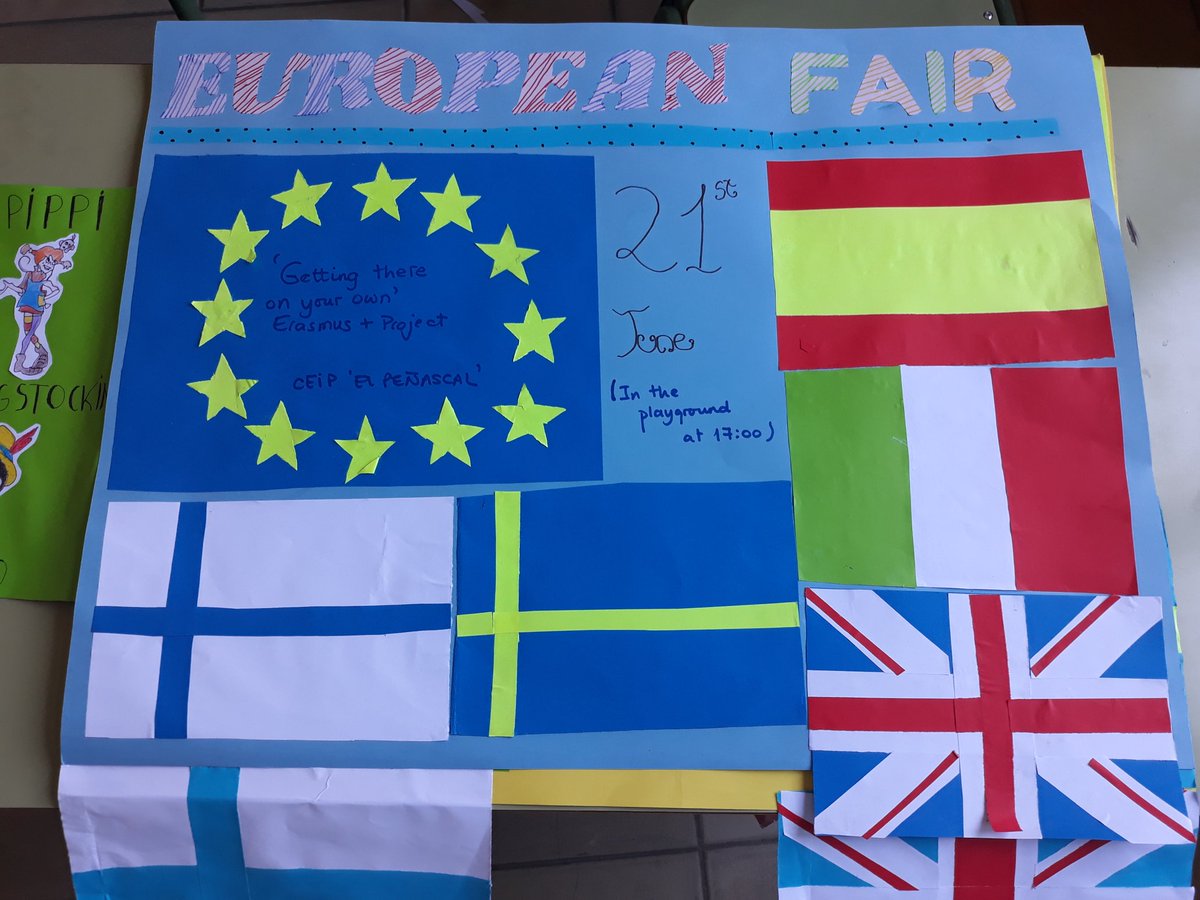 EUROPEAN FAIR
'Getting there
on your own'
Erasmus + Project
CEiP 'EL PEÑASCAL'
21st
June
(In the
playground
at 17:00)
PİPPİ